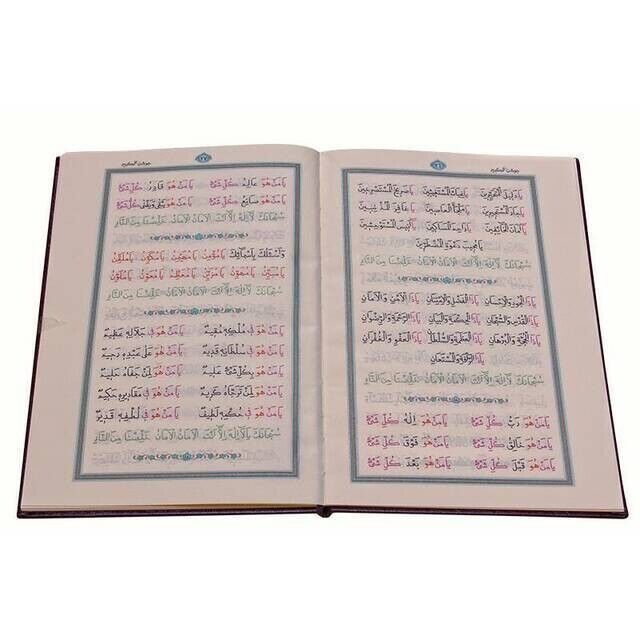 جوشن الكبير ٢٦
يَا دَلِيلَ الْمُتَحَيِّرِينَ يَا غِيَاثَ الْمُسْتَغِيثِينَ يَا صَرِيخَ الْمُسْتَصْرِخِينَ
يَا جَارَ الْمُسْتَجِيرِينَ يَا مَلْجَأَ الْعَاصِينَ يَا غَافِرَ الْمُذْنِبِينَ
يَا أَمَانَ الْخَائِفِينَ يَا رَاحِمَ الْمَسَاكِينِ يَا أَنِيسَ الْمُسْتَوْحِشِينَ
يَا مُجِيبَ دَعْوَةِ الْمُضْطَرِّينَ
سُبْحَانَكَ يَا لَا إِلَهَ إِلَّا أَنْتَ الْأَمَانُ الْأَمَانُ خَلِّصْنَا مِنَ النَّارِ
يَا ذَا الْجُودِ وَالْإِحْسَانِ يَا ذَا الْفَضْلِ وَالْاِمْتِنَانِ يَا ذَا الْأَمْنِ وَالْأَمَانِ
يَا ذَا الْقُدْسِ وَالسُّبْحَانِ يَا ذَا الْحِكْمَةِ وَالْبَيَانِ يَا ذَا الرَّحْمَةِ وَالرِّضْوَانِ
يَا ذَا الْحُجَّةِ وَالْبُرْهَانِ يَا ذَا الْعَظَمَةِ وَالسُّلْطَانِ يَا ذَا الْعَفْوِ وَالْغُفْرَانِ
يَا ذَا الرَّأْفَةِ وَالْمُسْتَعَانِ
سُبْحَانَكَ يَا لَا إِلَهَ إِلَّا أَنْتَ الْأَمَانُ الْأَمَانُ خَلِّصْنَا مِنَ النَّارِ
يَا مَنْ هُوَ رَبُّ كُلِّ شَيْءٍ يَا مَنْ هُوَ إِلَهُ كُلِّ شَيْءٍ
يَا مَنْ هُوَ خَالِقُ كُلِّ شَيْءٍ يَا مَنْ هُوَ فَوْقَ كُلِّ شَيْءٍ
يَا مَنْ هُوَ قَبْلَ كُلِّ شَيْءٍ يَا مَنْ هُوَ بَعْدَ كُلِّ شَيْءٍ
جوشن الكبير ٢٧
يَا مَنْ هُوَ عَالِمُ كُلِّ شَيْءٍ يَا مَنْ هُوَ قَادِرُ كُلِّ شَيْءٍ
يَا مَنْ هُوَ صَانِعُ كُلِّ شَيْءٍ يَا مَنْ هُوَ كُلِّ شَيْءٍ
سُبْحَانَكَ يَا لَا إِلَهَ إِلَّا أَنْتَ الْأَمَانُ الْأَمَانُ خَلِّصْنَا مِنَ النَّارِ
وَأَسْئَلُكَ بِأَسْمَائِكَ يَا مُؤْمِنُ يَا مُهَيْمِنُ يَا مُكَوِّنُ يَا مُلَقِّنُ
يَا مُبَيِّنُ يَا مُهَوِّنُ يَا مُزَيِّنُ يَا مُعَظِّمُ يَا مُعَوِّنُ يَا مُلَوِّنُ
سُبْحَانَكَ يَا لَا إِلَهَ إِلَّا أَنْتَ الْأَمَانُ الْأَمَانُ خَلِّصْنَا مِنَ النَّارِ
يَا مَنْ هُوَ فِي مُلْكِهِ مُقِيمٌ يَا مَنْ هُوَ فِي جَلَالِهِ عَظِيمٌ
يَا مَنْ هُوَ فِي سُلْطَانِهِ قَدِيمٌ يَا مَنْ هُوَ عَلَى عِبَادِهِ رَحِيمٌ
يَا مَنْ هُوَ بِكُلِّ شَيْءٍ عَلِيمٌ يَا مَنْ هُوَ لِمَنْ جَفَاهُ حَلِيمٌ
يَا مَنْ هُوَ لِمَنْ تَرَجَّاهُ كَرِيمٌ يَا مَنْ هُوَ فِي مَقَادِيرِهِ حَكِيمٌ
يَا مَنْ هُوَ فِي حُكْمِهِ لَطِيفٌ يَا مَنْ هُوَ فِي لُطْفِهِ قَدِيرٌ
سُبْحَانَكَ يَا لَا إِلَهَ إِلَّا أَنْتَ الْأَمَانُ الْأَمَانُ خَلِّصْنَا مِنَ النَّارِ